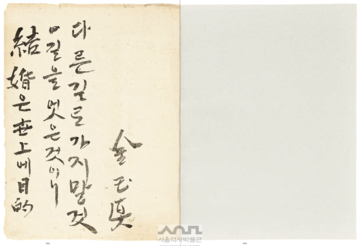 結婚은世上에目的
길을엇은것이니
다른길로가지말것
金玉眞
서울역사박물관